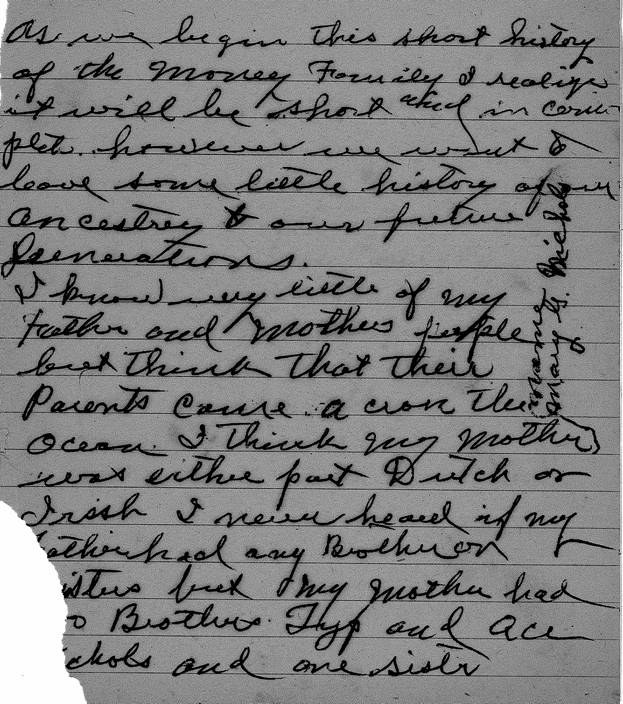 As we begin this short history
of the Money Family I realize
it will be short and in com
plet. however we want to
leave some little history of our
Ancestrey to our future
Generations.
I know very little of my
Father and Mothers people
but think that their
Parents came a cross the
Ocean. I think my mother
was either part Dutch or
Irish I never heard if my
father had any Brother or
isters but my mother had
o Brothers. Typ and Ace
ichols and one sistr
name
Mary G. Nichols